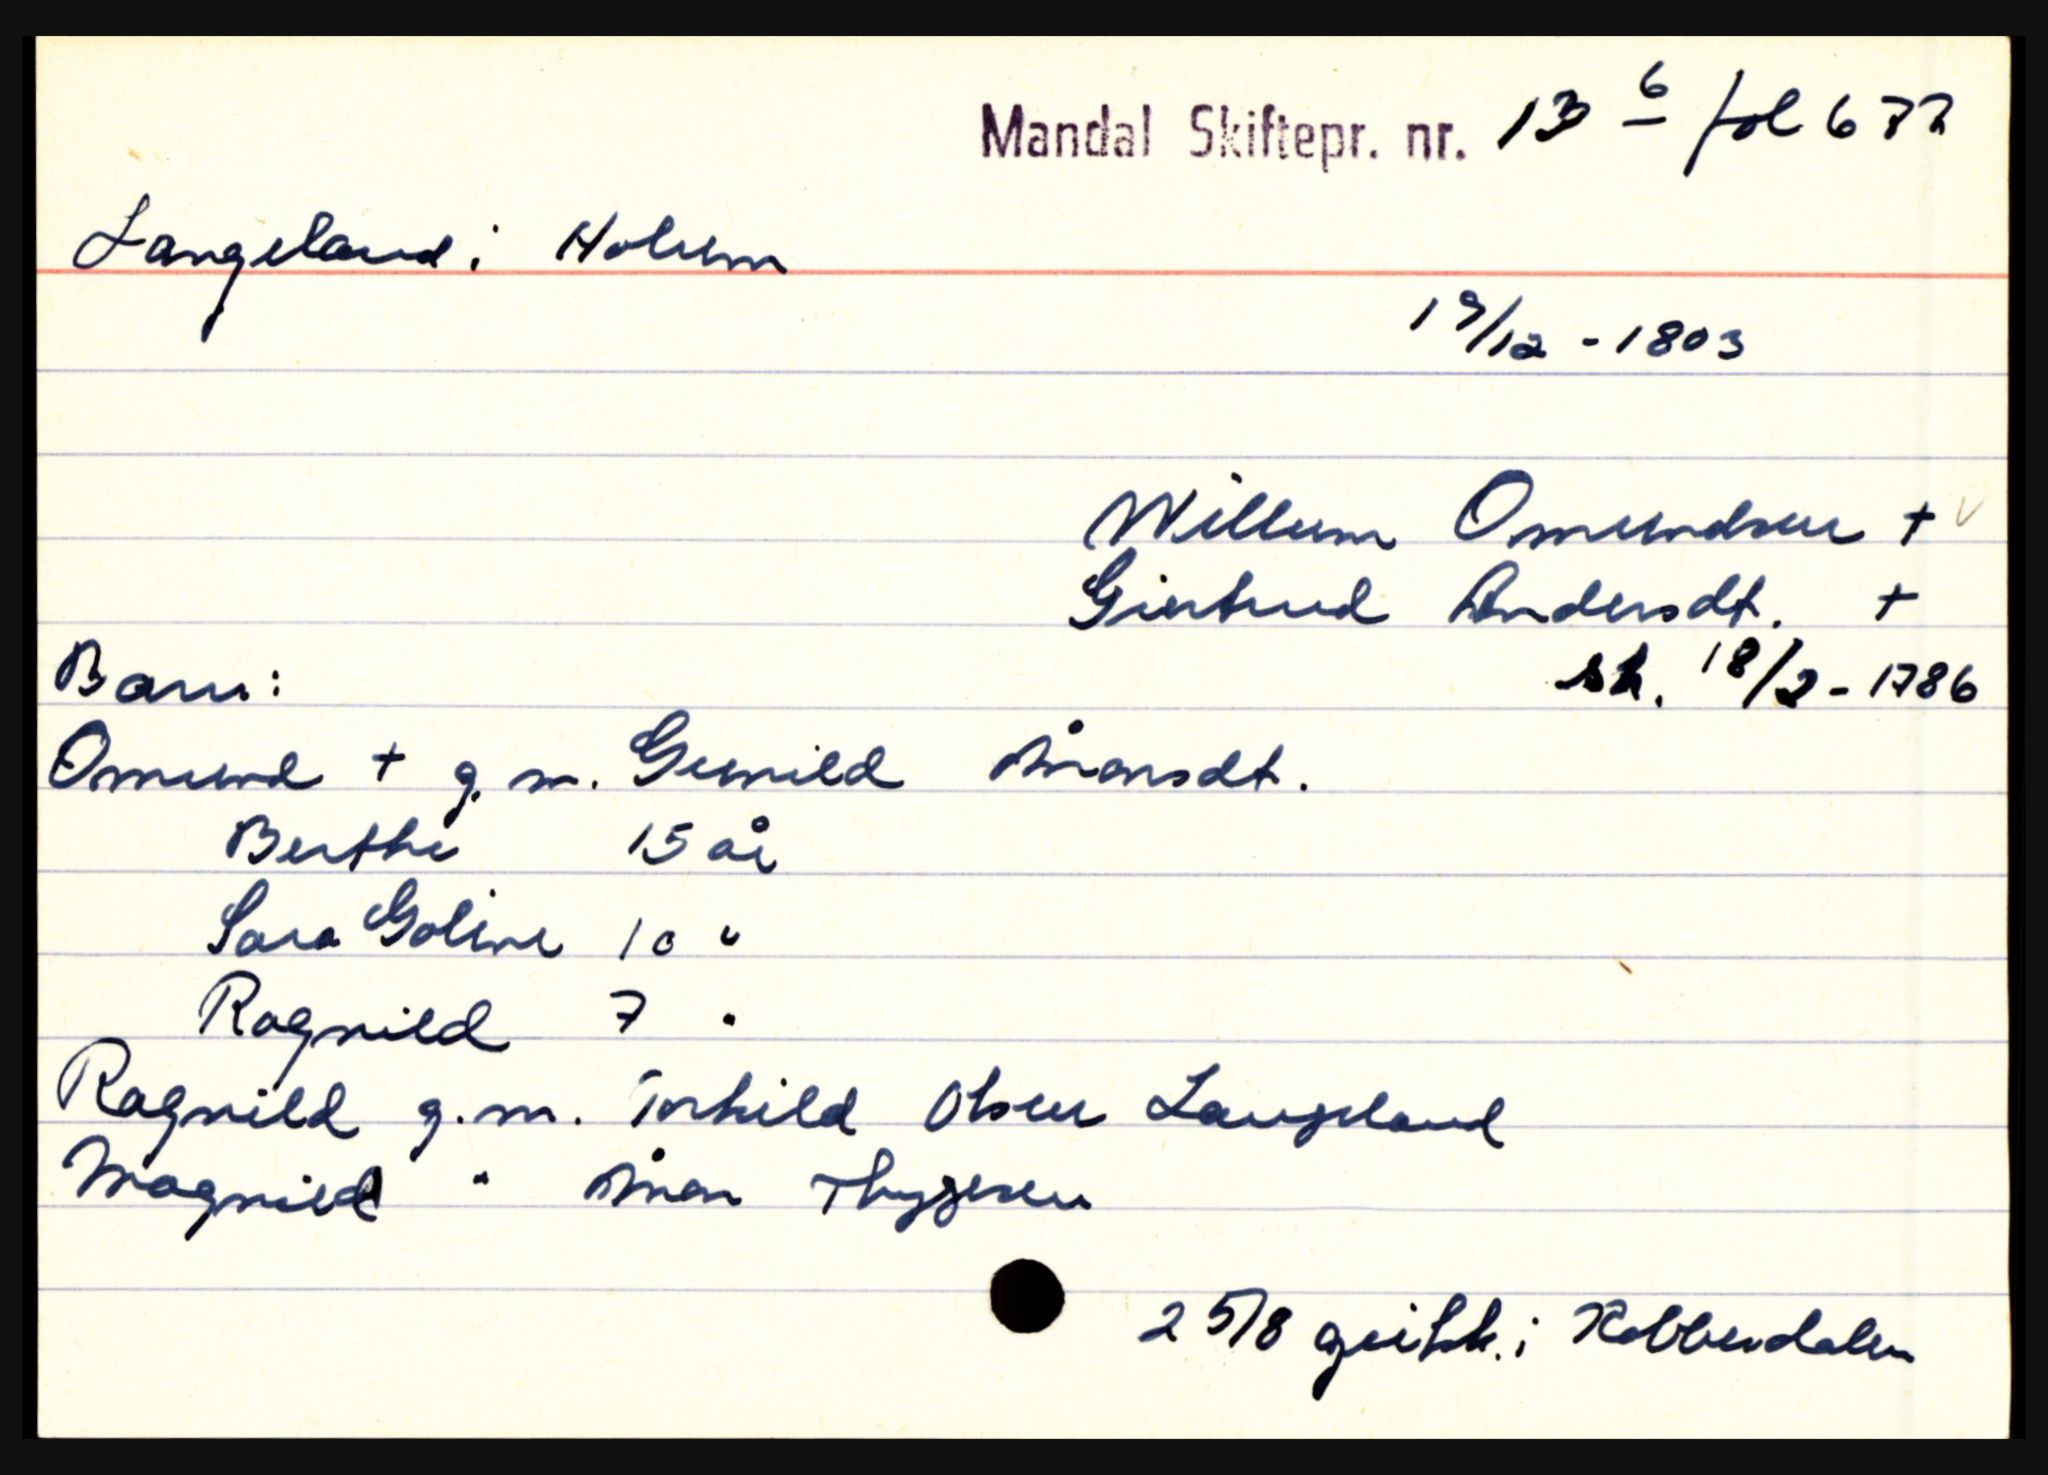 Mandal Skiftepr. nr. 13 6 fol 677
Langeland i Holum
19/12 - 1803
Willum Omundsen +
Giertrud Andersdt. +
Barn: sk. 18/2 - 1786
Omund + g. m. Gunild Ånonsdt.
Berthe 15 år
Sara Goline 10 "
Ragnild 7 "
Ragnild g. m. Torkild Olsen Langeland
Magnild " Ånon Thygesen
2 5/8 geitsk. i Kobberdalen